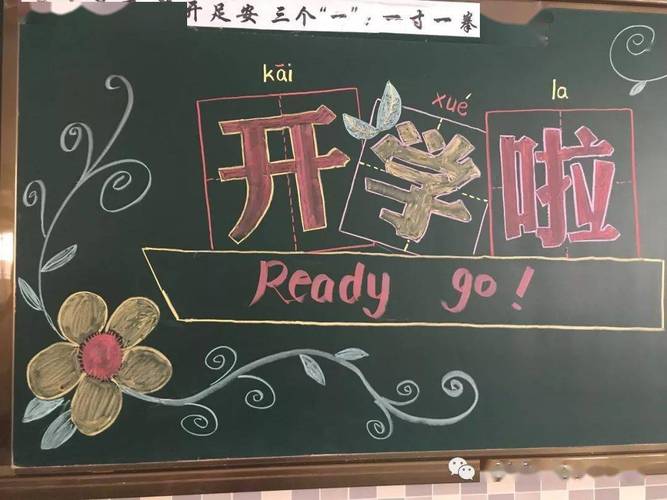 足安 三个“一”：一寸一拳
kāi xué la
开学啦
Ready go!